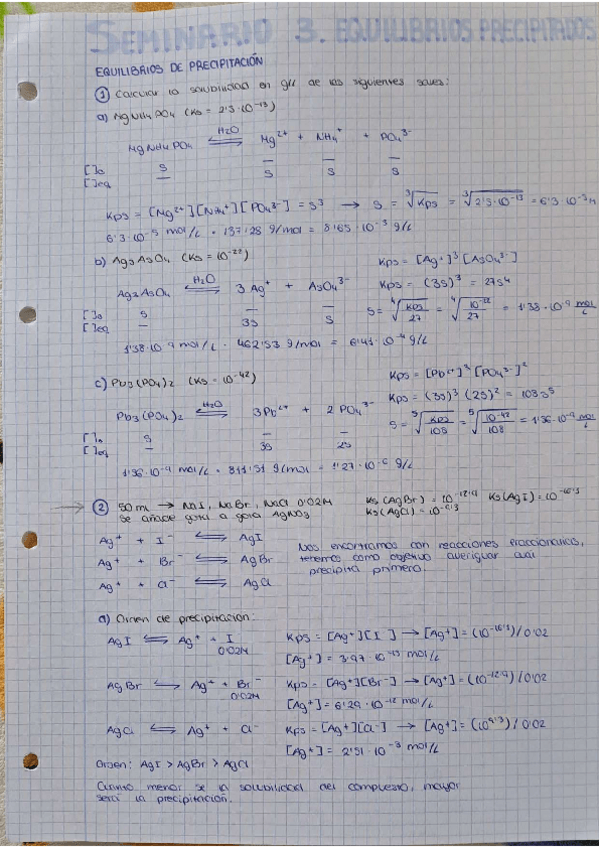 SEMINARIO 3. EQUILIBRIOS PRECIPITADOS
EQUILIBRIOS DE PRECIPITACIÓN
① Calcular la solubilidad en g/L de las siguientes sales:
a) MgNH4PO4 (Ks = 2'5·10⁻¹³)
H2O
MgNH4PO4 ⇌ Mg²⁺ + NH4⁺ + PO4³⁻
[ ]o S — — —
[ ]eq — S S S
Kps = [Mg²⁺][NH4⁺][PO4³⁻] = S³ → S = ∛Kps = ∛2'5·10⁻¹³ = 6'3·10⁻⁵M
6'3·10⁻⁵ mol/L · 137'28 g/mol = 8'65·10⁻³ g/L
b) Ag3AsO4 (Ks = 10⁻²²) Kps = [Ag⁺]³[AsO4³⁻]
H2O
Ag3AsO4 ⇌ 3Ag⁺ + AsO4³⁻ Kps = (3S)³ = 27S4
[ ]o S — — S = ⁴√Kps/27 = ⁴√10⁻²²/27 = 1'38·10⁻⁹ mol/L
[ ]eq — 3S S
1'38·10⁻⁹ mol/L · 462'53 g/mol = 6'41·10⁻⁴ g/L
c) Pb3(PO4)2 (Ks = 10⁻⁴²) Kps = [Pb²⁺]³[PO4³⁻]²
H2O
Pb3(PO4)2 ⇌ 3Pb²⁺ + 2PO4³⁻ Kps = (3S)³(2S)² = 108S⁵
[ ]o S — — S = ⁵√Kps/108 = ⁵√10⁻⁴²/108 = 1'56·10⁻⁹ mol/L
[ ]eq — 3S 2S
1'56·10⁻⁹ mol/L · 811'51 g/mol = 1'27·10⁻⁶ g/L
→ ② 50 mL → NaI, NaBr, NaCl 0'02M Ks(AgBr) = 10⁻¹²'⁹ Ks(AgI) = 10⁻¹⁶'³
Se añade gota a gota AgNO3 Ks(AgCl) = 10⁻⁹'³
Ag⁺ + I⁻ ⇌ AgI
Ag⁺ + Br⁻ ⇌ AgBr
Ag⁺ + Cl⁻ ⇌ AgCl
Nos encontramos con reacciones fraccionadas,
tenemos como objetivo averiguar cual
precipita primero.
a) Orden de precipitación:
AgI ⇌ Ag⁺ + I Kps = [Ag⁺][I ] → [Ag⁺] = (10⁻¹⁶'³)/0'02
0'02M [Ag⁺] = 3'97·10⁻¹⁵ mol/L
AgBr ⇌ Ag⁺ + Br⁻ Kps = [Ag⁺][Br⁻] → [Ag⁺] = (10⁻¹²'⁹)/0'02
0'02M [Ag⁺] = 6'29·10⁻¹² mol/L
AgCl ⇌ Ag⁺ + Cl⁻ Kps = [Ag⁺][Cl⁻] → [Ag⁺] = (10⁹'³)/0'02
[Ag⁺] = 2'51·10⁻⁸ mol/L
Orden: AgI > AgBr > AgCl
Cuanto menor se la solubilidad del compuesto, mayor
será la precipitación.